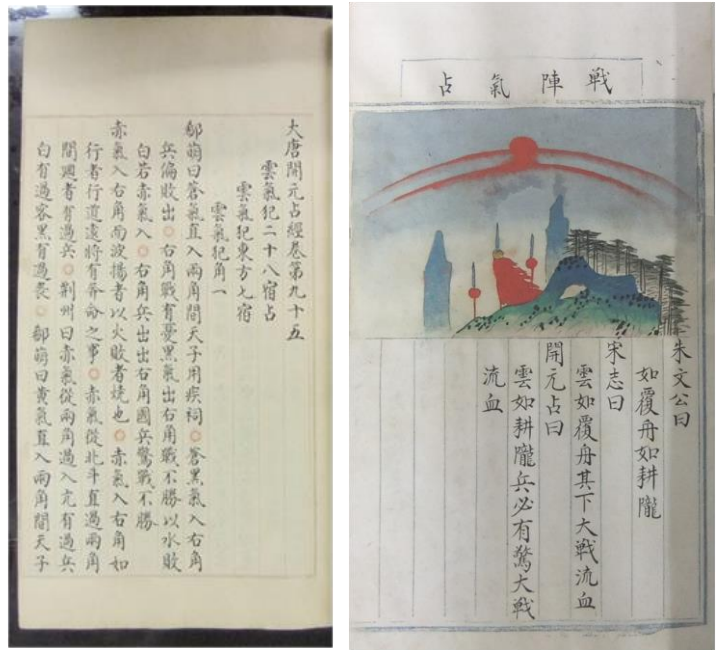 大唐開元占經卷第九十五
雲氣犯二十八宿占
雲氣犯東方七宿
雲氣犯角一
郗萌曰蒼氣直入兩角間天子用疾祠○蒼黑氣入右角
兵偏敗出○右角戰有憂黑氣出右角戰不勝以水敗
白若赤氣入○右角兵出出右角國兵驚戰不勝
赤氣入右角而波搖者以火敗者燒也○赤氣入右角如
行者行道遠將有奔命之事○赤氣從北斗直過兩角
間週者有過兵○荆州曰赤氣從兩角過入亢有過兵
白有過客黑有過喪○郗萌曰黃氣直入兩角間天子
戦陣氣占
朱文公曰
如覆舟如耕隴
宋志曰
雲如覆舟其下大戦流血
開元占曰
雲如耕隴兵必有驚大戦
流血